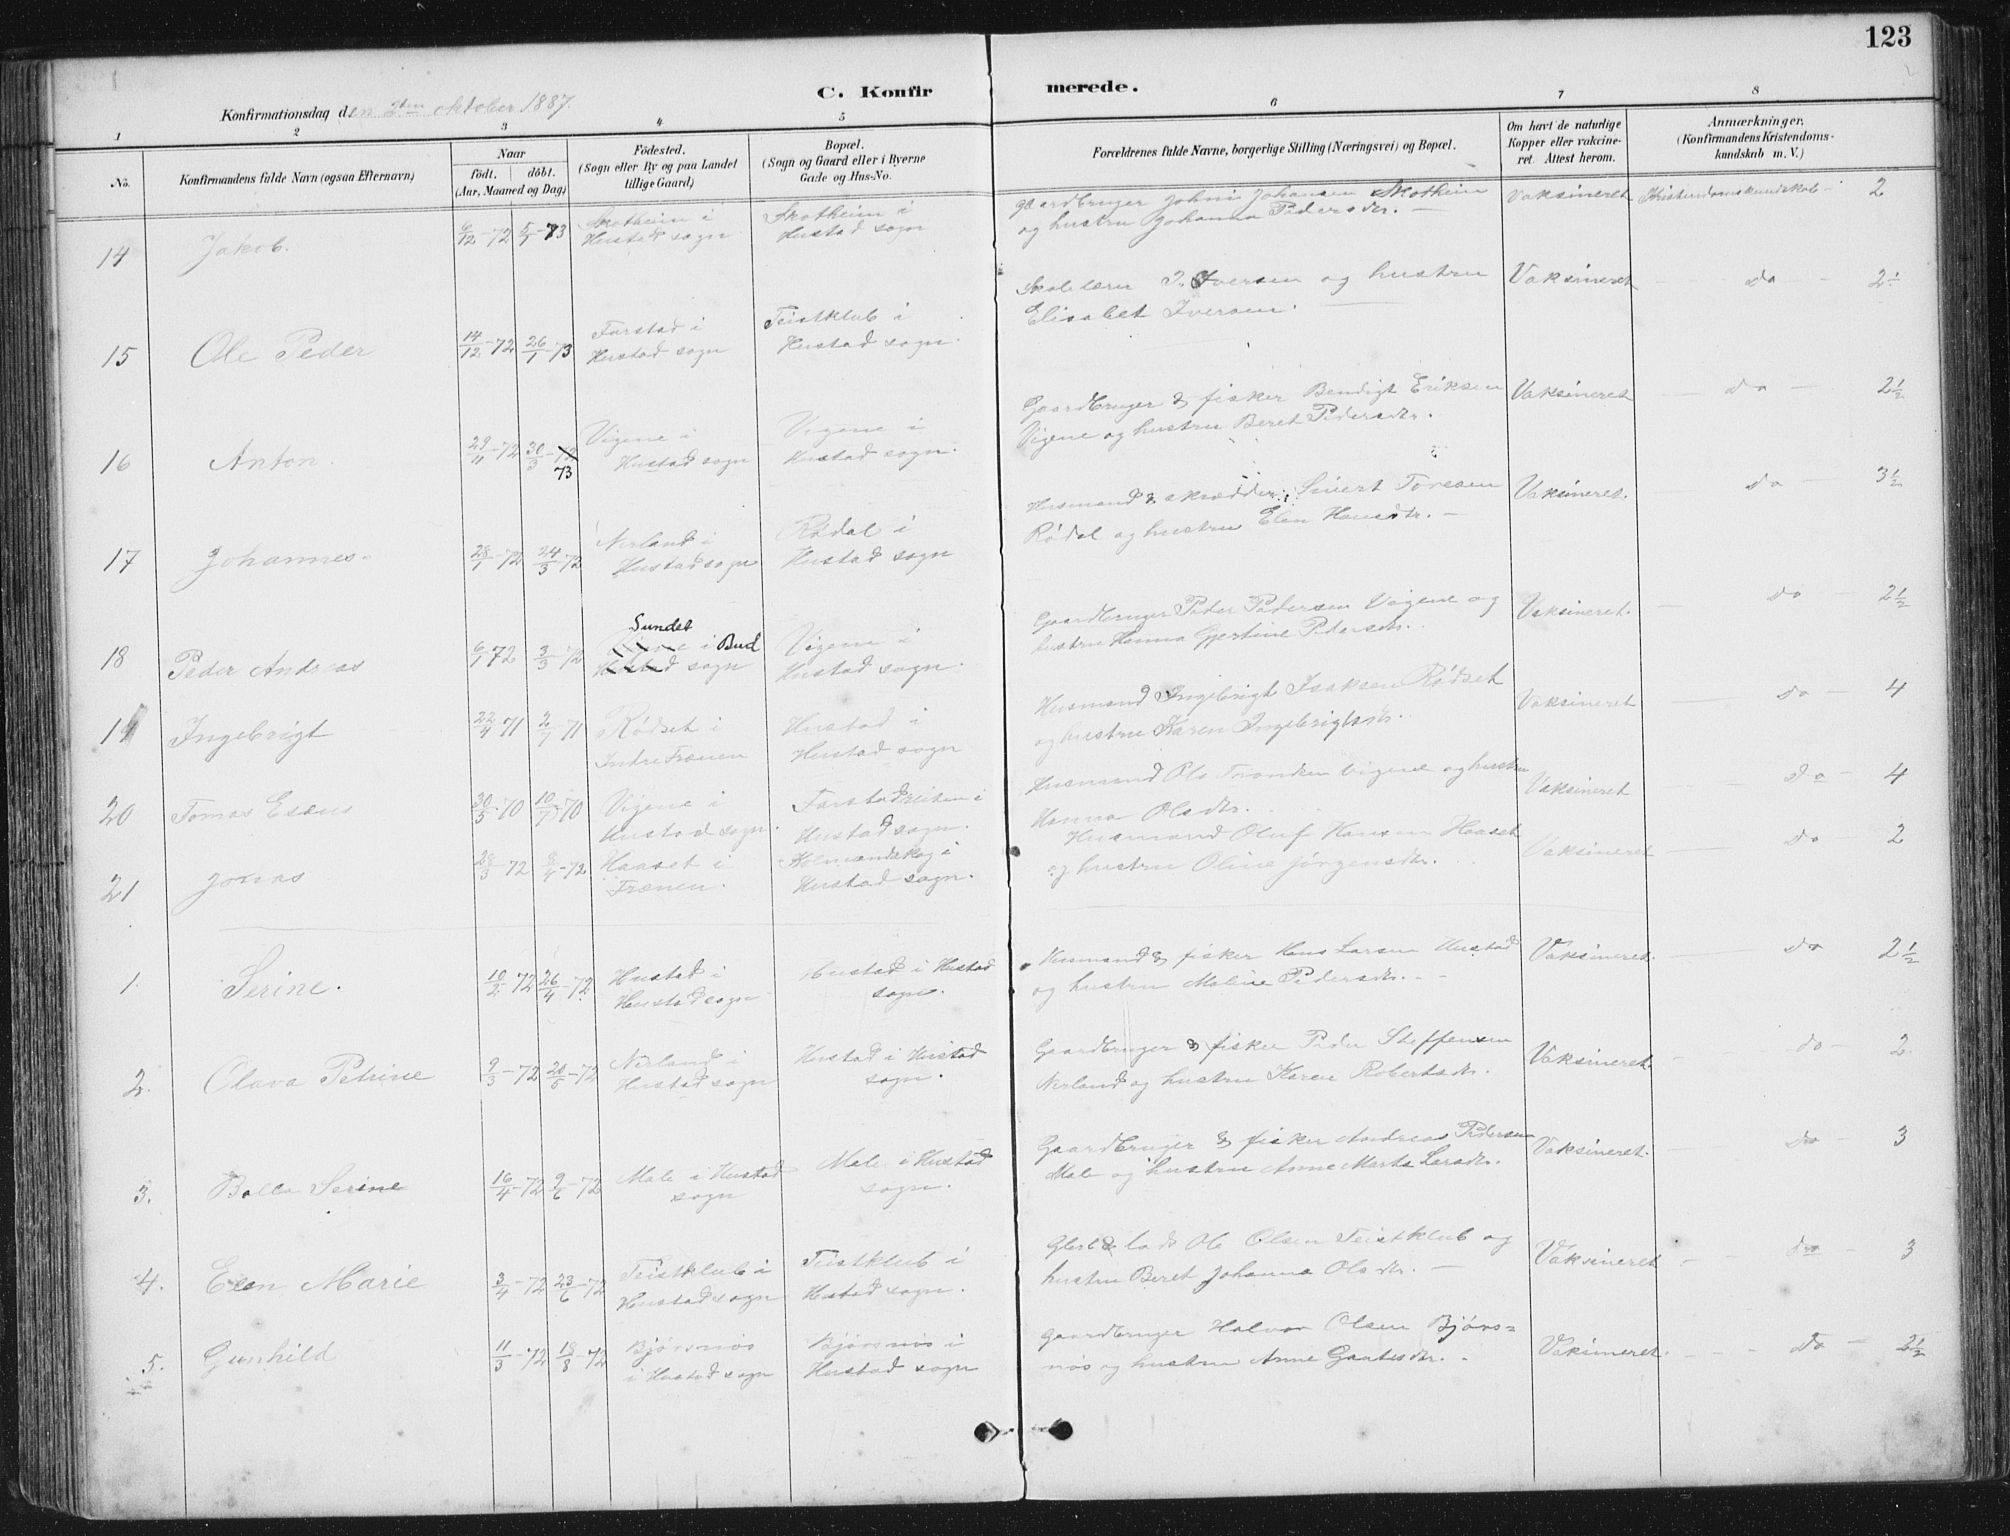 123
C. Konfirmerede.
Konfirmationsdag den 2den oktober 1887.
1 2 3 4 5 6 7 8
No. Konfirmandens fulde Navn (ogsaa Efternavn)
Naar
födt. döbt.
(Aar, Maaned og Dag)
Födested.
(Sogn eller By og paa Landet
tillige Gaard)
Bopæl.
(Sogn og Gaard eller i Byerne
Gade og Hus-No.
Forældrenes fulde Navne, borgerlige Stilling (Næringsvei) og Bopæl.
Om havt de naturlige
Kopper eller vakcine-
ret. Attest herom.
Anmærkninger.
(Konfirmandens Kristendoms-
kundskab m. V.)
14 Jakob. 6/12-72 5/1-73
Skotheim i
Hustad sogn
Skotheim i
Hustad sogn
gaardbruger Johni Johansen Skotheim
og hustru Johanna Pedersdtr. —
Vaksineret Kristendomskundskab - 2
15 Ole Peder 14/12-72 26/1-73
Farstad i
Hustad sogn
Teistklub i
Hustad sogn.
Skolelærer I. Iversen og hustru
Elisabet Iversen.
Vaksineret do - 2½
16 Anton. 29/11-72 30/3-72 73
Vigene i
Hustad sogn
Vigene i
Hustad sogn.
Gaardbruger & fisker Bendigt Eriksen
Vigene og hustru Beret Pedersdtr.
Vaksineret do - 2½
17 Johannes- 28/1-72 24/3-72
Nerland i
Hustad sogn
Rødal i
Hustad sogn
Husmand & skrædder Sivert Toresen
Rødal og hustru Elen Hansdtr. —
Vaksineret. do - 3½
18 Peder Andreas 6/1 72 3/3-72
Sundet
Vigene i Bud
Hustad sogn
Vigene i
Hustad sogn.
Gaardbruger Peder Pedersen Vigene og
hustru Hanna Gjertine Pedersdtr.
Vaksineret. do - 2½
19 Ingebrigt 22/4-71 2/7-71
Rødset i
Indre Frænen
Hustad i
Hustad sogn
Husmand Ingebrigt Isaksen Rødset
og hustru Karen Ingebrigtsdtr.
Vaksineret do - 4
20 Tomas Esaus 30/5-70 10/7-70
Vigene i
Hustad sogn.
Farstadreiten i
Hustad sogn.
Husmand Ols Tronsen Vigene og hustru
Hanna Olsdtr.
Vaksineret do - 4
21 Jonas 28/3-72 8/4-72
Haaset i
Frænen.
Holmandskog i
Hustad sogn.
Husmand Oluf Hansen Haaset
og hustru Oline Jørgensdtr.
Vaksineret do 2
1. Serine. 10/2-72 26/4-72
Hustad i
Hustad sogn
Hustad i Hustad
sogn.
Husmand & fisker Hans Larsen Hustad
og hustru Maline Pedersdtr. - -
Vaksineret. do 2½
2. Olava Petrine 9/3-72 20/5-72
Nerland i
Hustad sogn
Hustad i Hustad
sogn.
Gaardbruger & fisker Peder Steffensen
Nerland og hustru Karen Robertsdtr.
Vaksineret. do- 2.
3. Bolla Serine 16/4-72 9/6-72
Male i Hustad
sogn
Male i Hustad
sogn.
Gaardbruger & fisker Andreas Pedersen
Male og hustru Anne Marta Larsdtr.
Vaksineret. do 3
4. Elen Marie 3/4-72 23/6-72
Teistklub i
Hustad sogn
Teistklub i
Hustad sogn.
lods Ole Olsen Teistklub og
hustru Beret Johanna Olsdtr. —
Vaksineret do - 3
5. Gunhild 11/3-72 18/8-72
Bjørsnøs
i Hustad sogn
Bjørsnøs i
Hustad sogn
Gaardbruger Halvor Olsen Bjørs=
nøs og hustru Anne Gautesdtr. -
Vaksineret. do - 2½